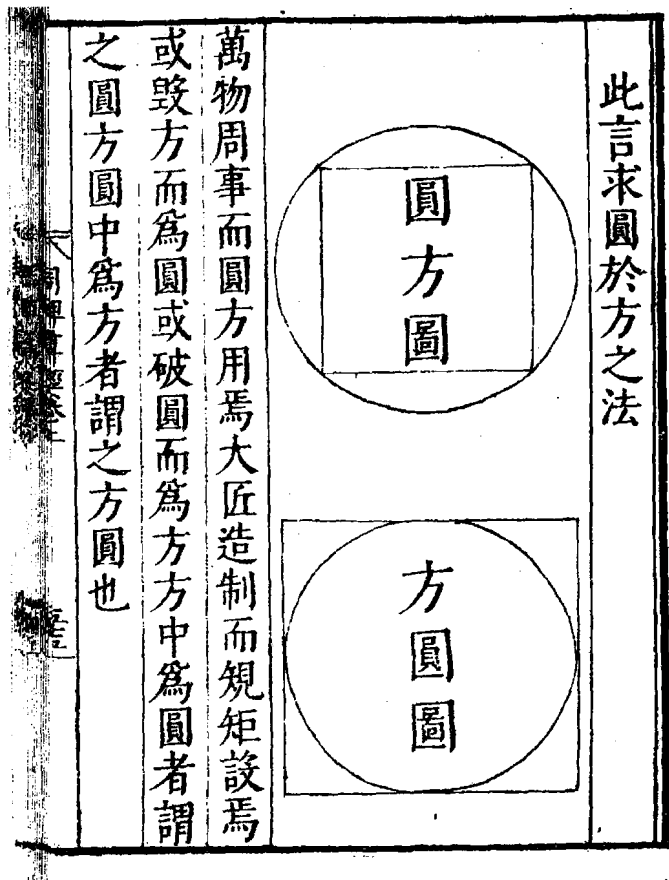 此言求圓於方之法
圓方圖
方圓圖
萬物周事而圓方用焉大匠造制而規矩設焉
或毀方而為圓或破圓而為方方中為圓者謂
之圓方圓中為方者謂之方圓也